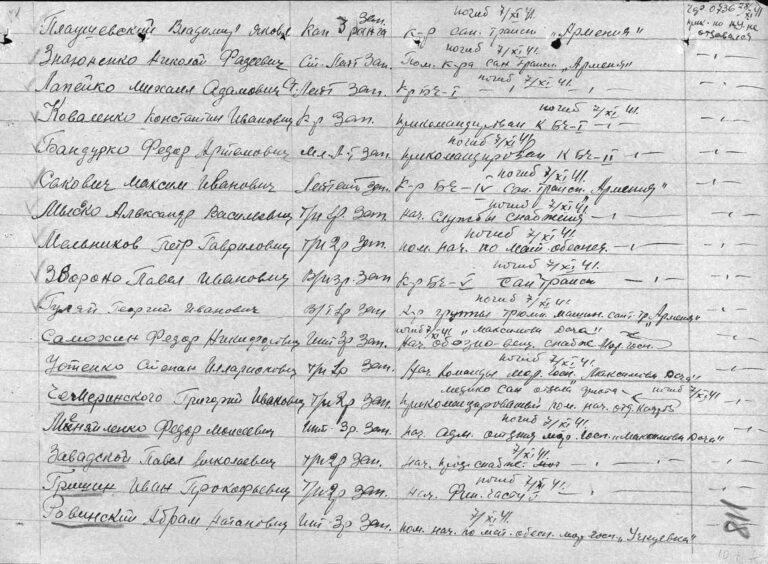 Плаушевский Владимир Яковл Кап. 3 ранга Зап. к-р сан. трансп „Армения" погиб 7/XI 41.
Знаюненко Николай Фадеевич Ст. Лейт Зап. Пом. к-ра сан трансп „Армения" погиб 7/XI 41. — " —
Лапейко Михаил Адамович Ст. Лейт Зап. к-р БЧ-I — " — погиб 7/XI 41. — " —
Коваленко Константин Иванович к-р Зап. прикомандирован к БЧ-I погиб 7/XI 41. — " —
Бандурко Федор Артемович Мл. Л-т Зап. прикомандирован к БЧ-II погиб 7/XI 41. — " —
Сакович Максим Иванович Лейтен. Зап. к-р БЧ-IV сан. трансп. „Армения" погиб 7/XI 41. — " —
Александр Васильевич Т/и 2р Зап. нач. Службы снабжения погиб 7/XI 41. — " —
Мельников Петр Гаврилович Т/и 2р Зап. пом. нач. по мат. обеспеч. — " — погиб 7/XI 41. — " —
Зворона Павел Иванович В/и 3р. Зап. к-р БЧ-V сан Трансп погиб 7/XI 41. — " —
Гуляй Георгий Иванович В/т 2р Зап. к-р группы трюмн. машин. сант. тр „Армения" погиб 7/XI 41. — " —
Самохин Федор Никифорович Инт 3р Зап. нач. обозно-вещ. снабж. Мор. госп. погиб 7/XI 41. „Максимова Дача" — " —
Устенко Степан Илларионович Т/и 2р Зап. Нач Команды мор. госп. „Максимова Дача" погиб 7/XI 41. — " —
Чемеринского Григорий Иванович Т/и 2р Зап. прикомандированый пом. нач. отд. кадров медико сан отдел флота погиб 7/XI 41 — " —
Миняйленко Федор Моисеевич Инт. 3р. Зап. нач. адм. отд-ния мор. госп. „Максимова Дача" погиб 7/XI 41. — " —
Завадской Павел Николаевич Т/и 2р Зап. нач. прод. снабже. — " — погиб 7/XI 41. — " —
Гришин Иван Прокофьевич Т/и 2р Зап. нач. Фин. части погиб 7/XI 41. — " —
Равинский Абрам Натанович Инт 3р Зап. пом. нач. по мат. обесп. мор. госп. 7/XI 41.
811